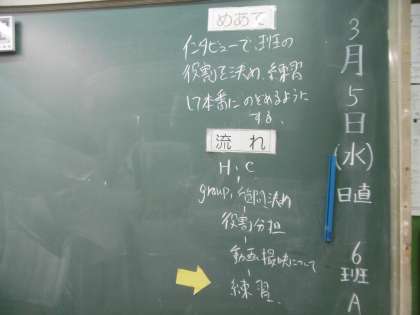 3月5日(水)
日直
6班A
めあて
インタビューで、班の
役割を決め、練習
し本番にのぞめるように
する。
流れ
H.C
group, 決め
役割分担
動画撮影について
練習